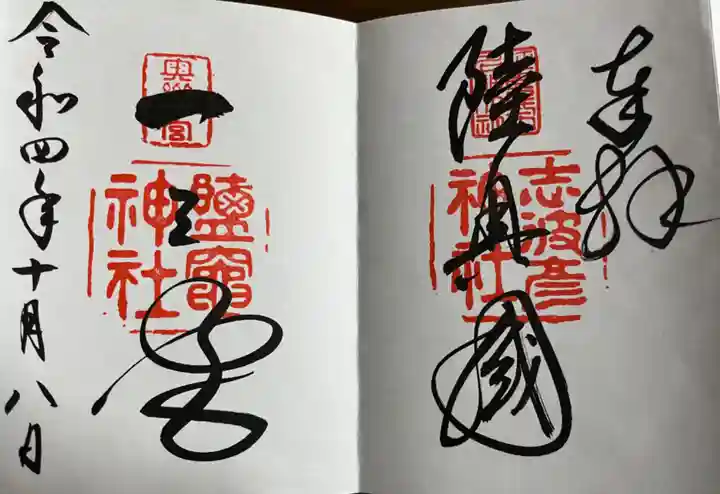 奉拝
陸奥國
志波彦
神社
一之宮
奥州一宮
鹽竈
神社
令和四年十月八日